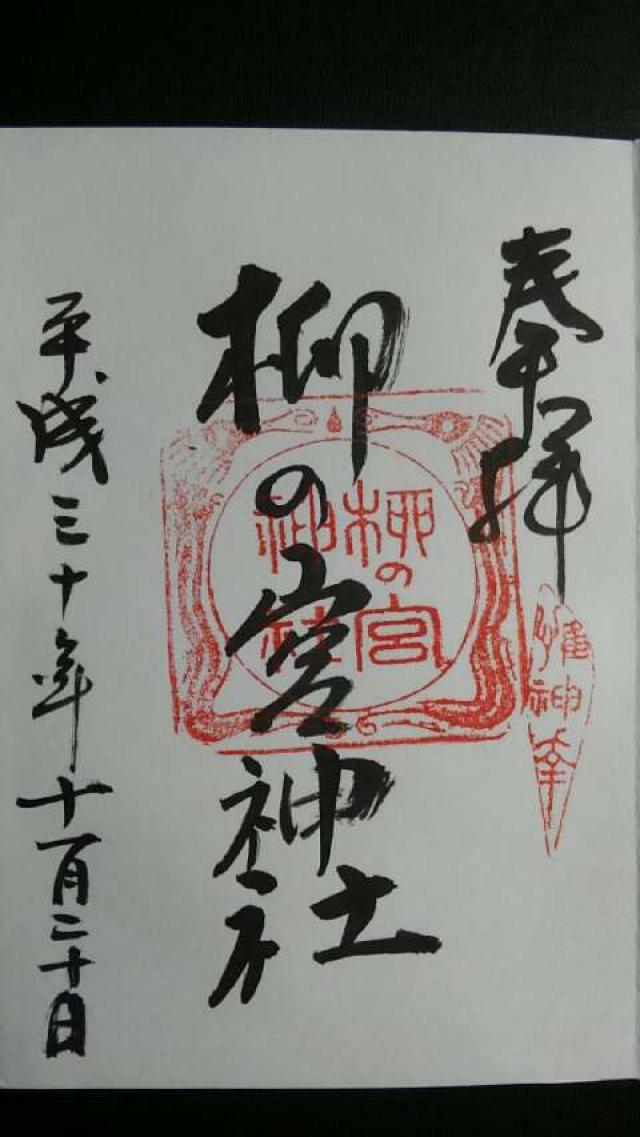 奉拝
惟神幸
柳の宮神社
柳の宮
神社
平成三十年十一月二十日